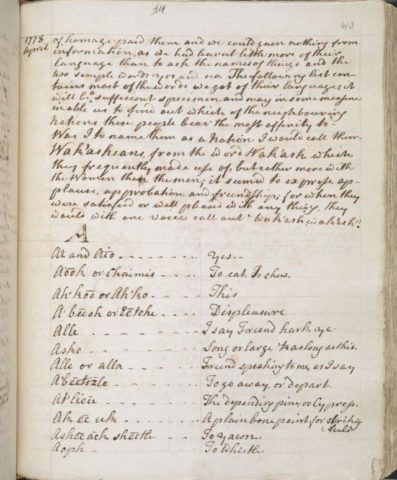 14
43
1778
April
of homage paid them and we could gain nothing from
information, as we had learnt little more of their
language than to ask the names of things and the
two simple words yes and no. The following list con-
tains most of the words we got of their language, it
will be a sufficient specimen and may in some measure
inable us to find out which of the neighbouring
nations these people bear the most affinity to
Was I to name them as a Nation I would call them
Wak'asheans, from the word Wak'ash which
they frequently made use of, but rather more with
the Women than the men; it seemed to express ap-
plause, approbation and friendship; for when they
were satisfied or well pleased with any thing, they
would with one voice call out Wak'ash wak'ash!
A
Ai and Aio - - - - - - - Yes
Aook or Chaimis - - - - To eat. To chew.
Ak'koo or Ak'ko - - - - This
A'beesh or Eetche - - - - Displeasure
Alle - - - - - - - - I say Friend hark aye
Asko - - - - - - - - Long or large 'tas long as this
Alle or alla - - - - - - Friend speaking to me, as I say
A'eetszle - - - - - - - To go away, or depart
At'lieu - - - - - - - - The depending pine, or Cypress.
Ak ee uk - - - - - - A plain bone point for striking
Seals
Asheeaik sheetle - - - To yawn
Aoph - - - - - - - - To whistle